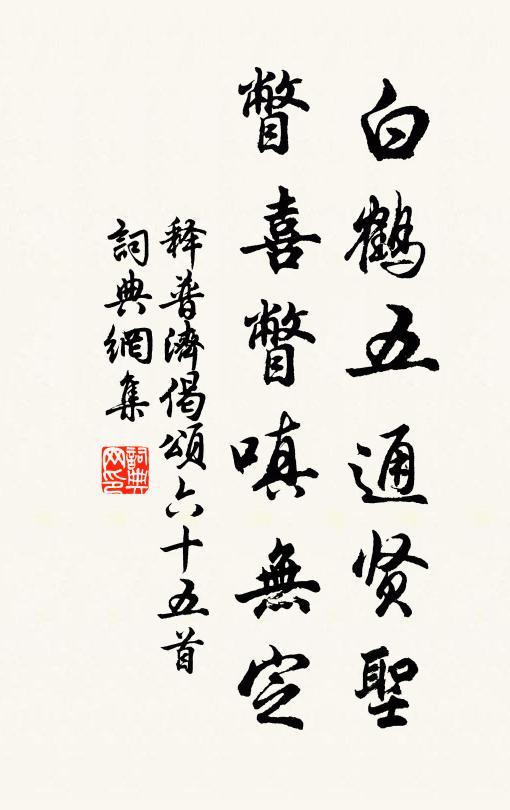 白鹤五通贤聖
瞥喜瞥嗔無定
释普濟偈頌六十五首
詞典網集
詞典网印